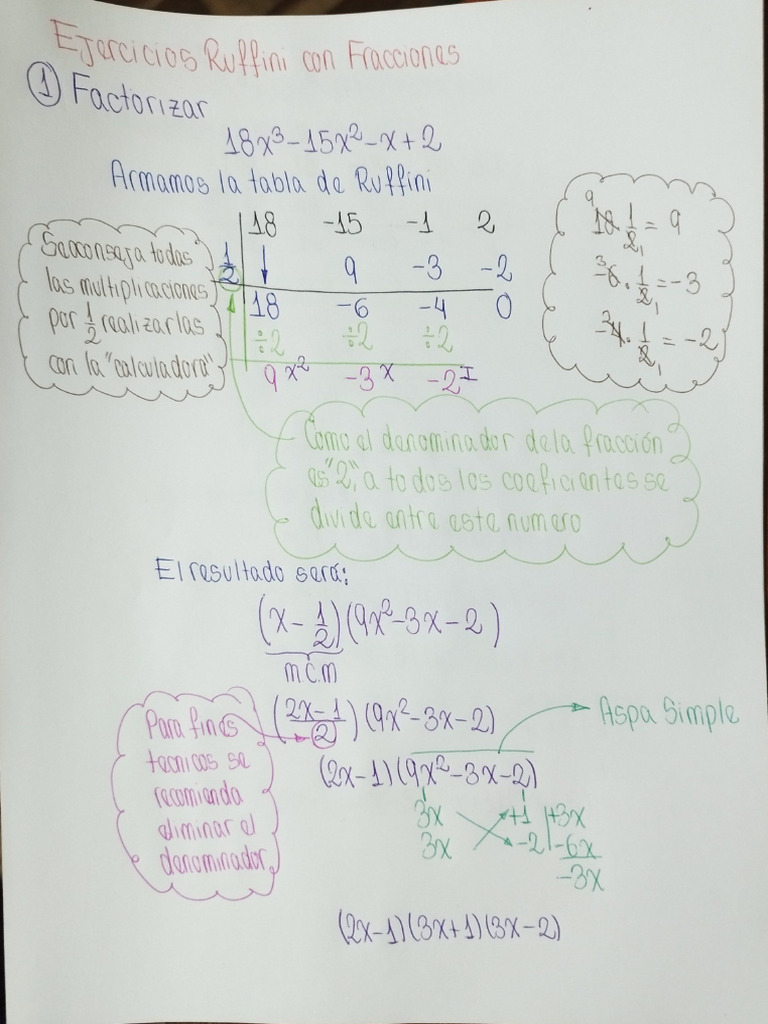 Ejercicios Ruffini con Fracciones
① Factorizar
18x³-15x²-x+2
Armamos la tabla de Ruffini
Se aconseja todas
las multiplicaciones
por 1/2 realizarlas
con la "calculadora"
18 -15 -1 2
1/2 ↓ 9 -3 -2
18 -6 -4 0
÷2 ÷2 ÷2
9x² -3x -2 I
9 18 · 1/2 1 = 9
-3 6 · 1/2 1 = -3
-2 4 · 1/2 1 = -2
Como el denominador de la fracción
es "2", a todos los coeficientes se
divide entre este numero
El resultado será:
(x - 1/2)(9x²-3x-2)
m c.m
((2x-1)/2)(9x²-3x-2)
Para fines
tecnicos se
recomienda
eliminar el
denominador
Aspa Simple
(2x-1)(9x²-3x-2)
3x +1 +3x
3x -2 -6x
-3x
(2x-1)(3x+1)(3x-2)